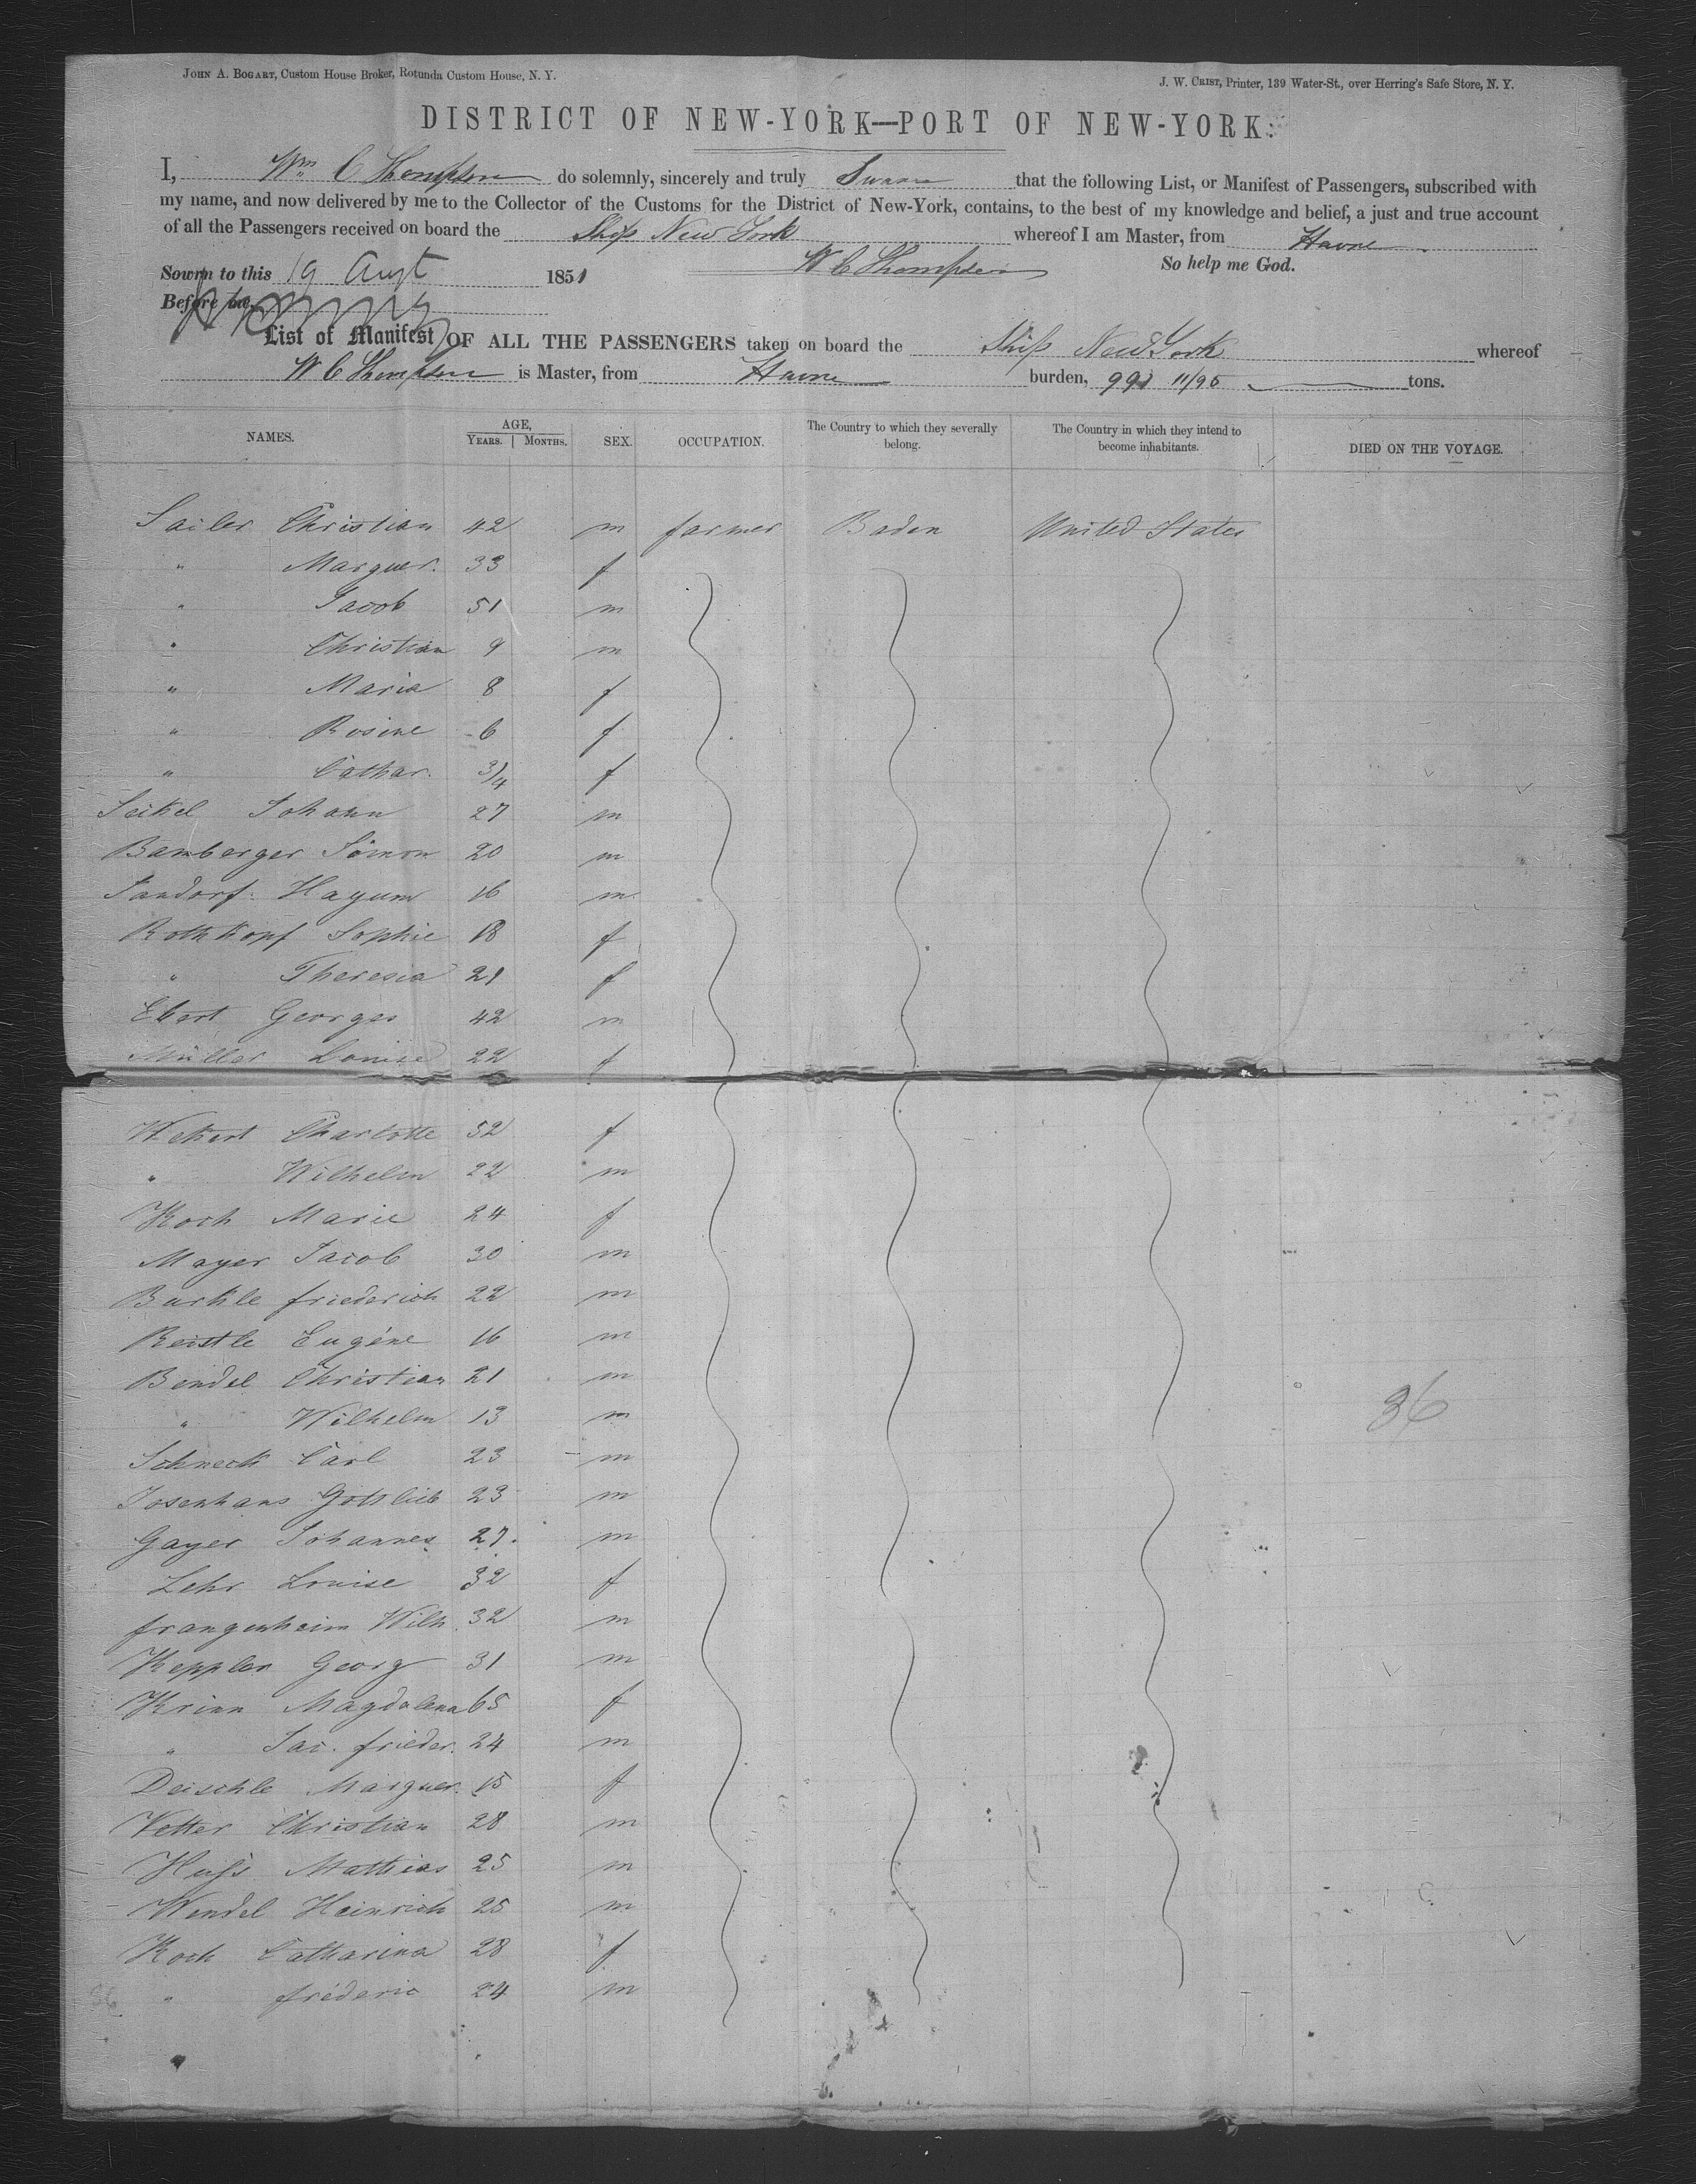 JOHN A. BOGART, Custom House Broker, Rotunda Custom House, N. Y.
J. W. CRIST, Printer, 139 Water-St., over Herring's Safe Store, N. Y.
DISTRICT OF NEW-YORK—PORT OF NEW-YORK.
I, Wm C Thompson do solemnly, sincerely and truly Swear that the following List, or Manifest of Passengers, subscribed with
my name, and now delivered by me to the Collector of the Customs for the District of New-York, contains, to the best of my knowledge and belief, a just and true account
of all the Passengers received on board the Ship New York whereof I am Master, from Havre
Sworn to this 19 Augt 1851 W C Thompson So help me God.
Before me,
List of Manifest OF ALL THE PASSENGERS taken on board the Ship New York whereof
W C Thompson is Master, from Havre burden, 991 11/95 tons.
NAMES. AGE, YEARS. MONTHS. SEX. OCCUPATION. The Country to which they severally belong. The Country in which they intend to become inhabitants. DIED ON THE VOYAGE.
Sailer Christian 42 m farmer Baden United States
" Marguer. 33 f
" Jacob 51 m
" Christian 9 m
" Maria 8 f
" Rosine 6 f
" Cathar. 3/4 f
Seikel Johann 27 m
Bamberger Simon 20 m
Sandorf Hayum 16 m
Rothkopf Sophie 18 f
" Theresia 21 f
Ebert Georges 42 m
Müller Louise 22 f
Wekert Charlotte 52 f
" Wilhelm 22 m
Koch Marie 24 f
Mayer Jacob 30 m
Burkle friederich 22 m
Reistle Eugéne 16 m
Bendel Christian 21 m
" Wilhelm 13 m 36
Schneck Carl 23 m
Josenhans Gottlieb 23 m
Gayer Johannes 27 m
Lehr Louise 32 f
frangenheim Wilh. 32 m
Keppler Georg 31 m
Krinn Magdalena 65 f
" Jac. frieder. 24 m
Deischle Marguer. 15 f
Vetter Christian 28 m
Huss Mathias 25 m
Wendel Heinrich 25 m
Koch Catharina 28 f
36 " fréderic 24 m